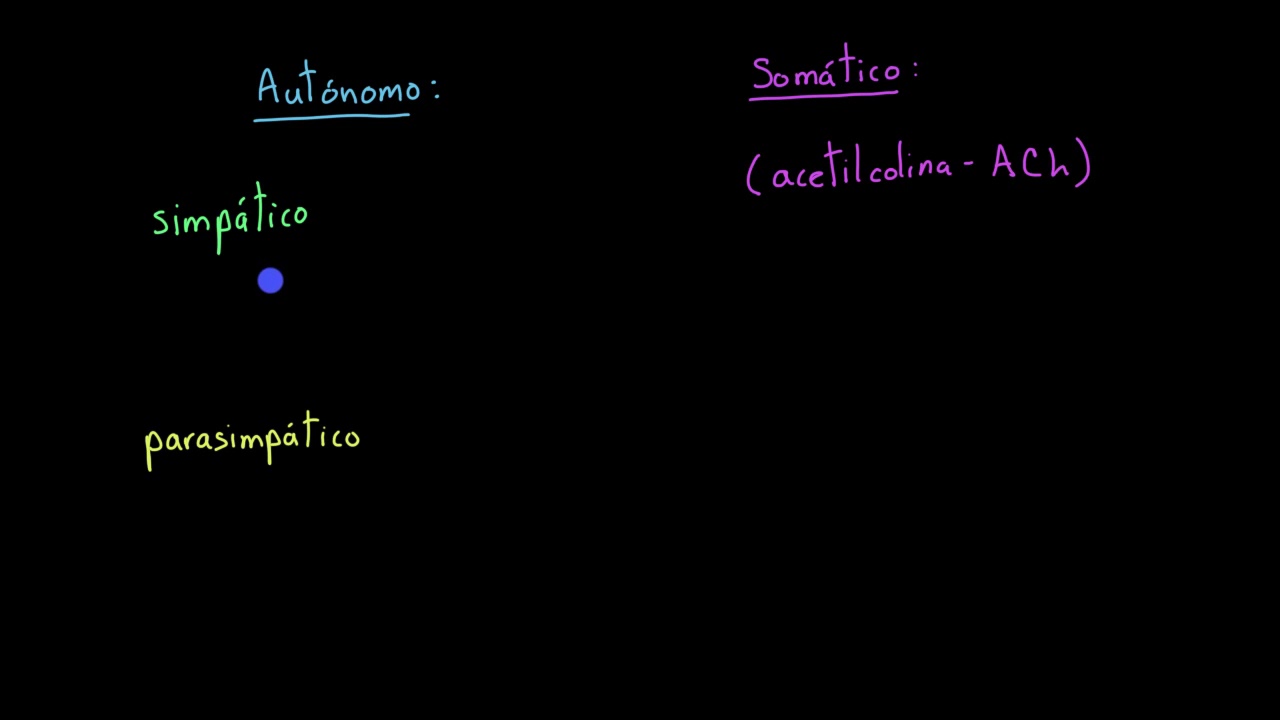 Autónomo:
Somático:
(acetilcolina - ACh)
simpático
parasimpático